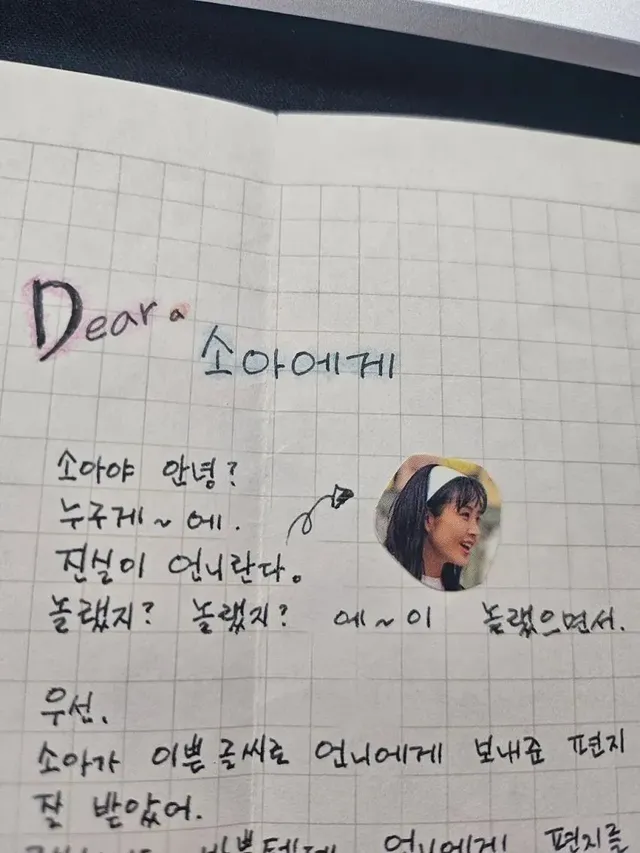 Dear.
소아에게
소아야 안녕?
누구게~에.
진실이 언니란다.
놀랬지? 놀랬지? 에~이 놀랬으면서.
우선,
소아가 이쁜 글씨로 언니에게 보내준 편지
잘 받았어.
바쁠텐데 언니에게 편지를